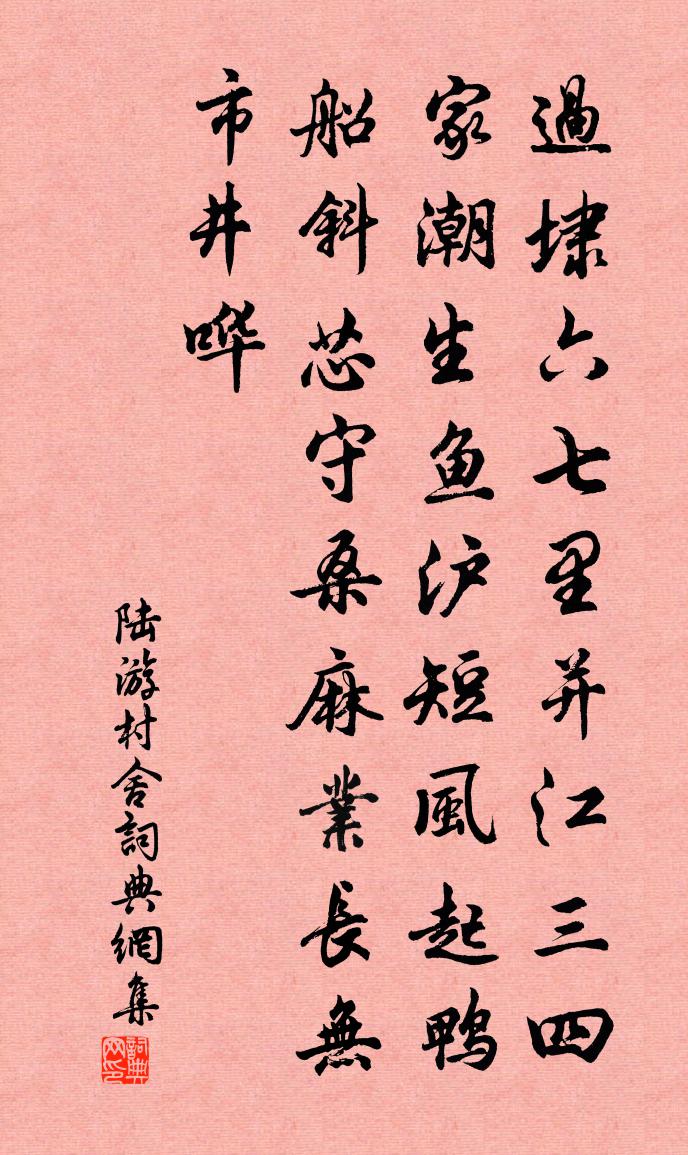 過埭六七里并江三四
家潮生鱼沪短風起鴨
船斜芯守桑麻業長無
市井哗
陆游村舍詞典網集
詞典网印